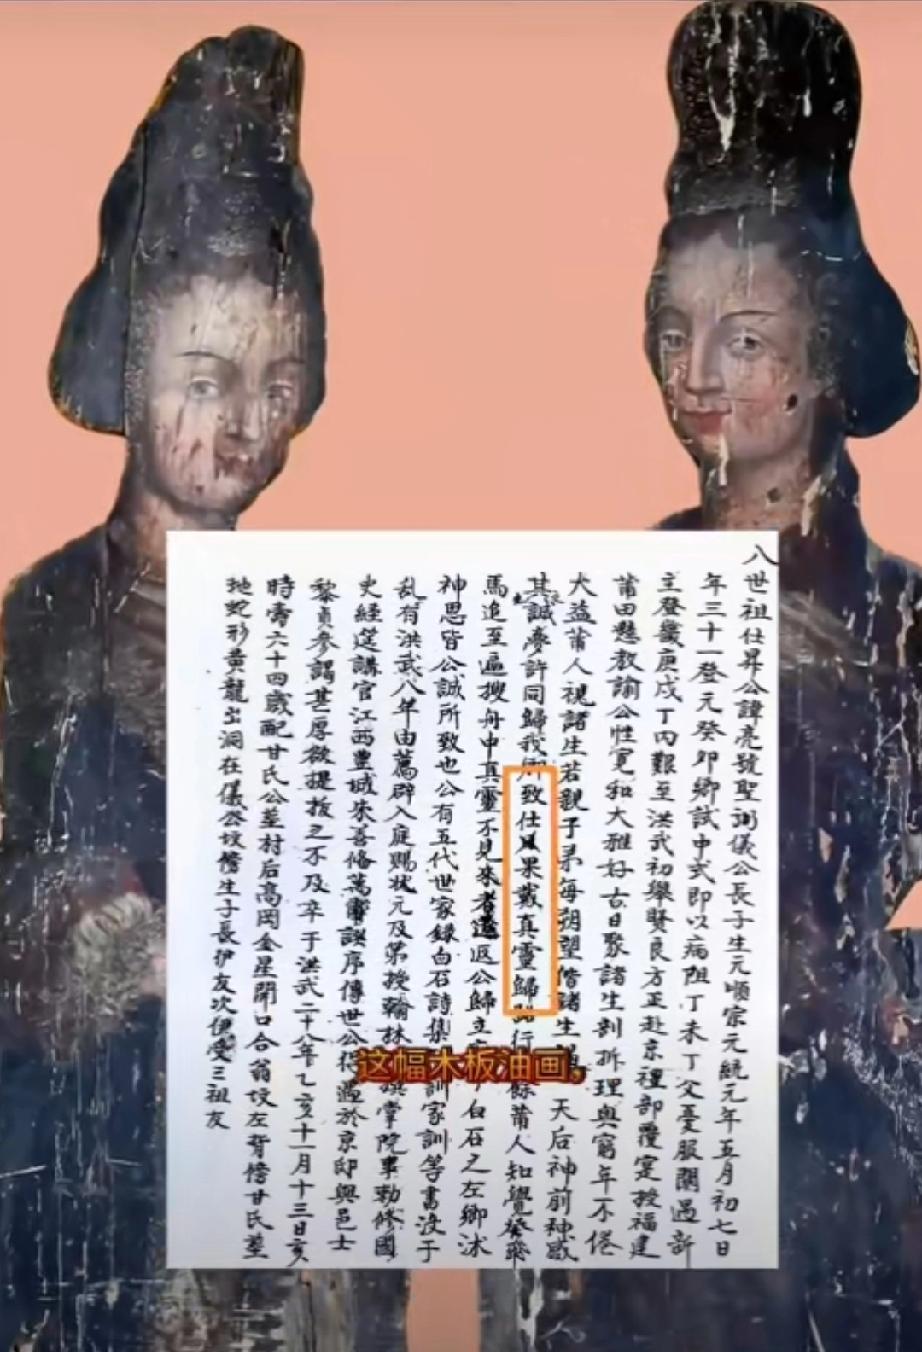 八世祖仕昇公諱亮號聖澗儀公長子生元順宗元統元年五月初七日
年三十一登元癸卯鄉試中式即以病阻丁未丁父憂服闋過新
主登幾庚戌丁內艱至洪武初舉賢良方正赴京禮部覆寔授福建
莆田縣教諭公性寛和大雅好古日聚諸生剖拆理與窮年不倦
大益莆人視諸生若親子弟每朔望偕諸生 天后神前神感
其誠夢許同歸我鄉致仕果戴真靈歸 行 餘莆人知覺發
馬追至遍搜舟中真靈不見來者還返公歸立 白石之左鄉沭
神恩皆公誠所致也公有五代世家錄白石詩集 訓家訓等書沒于
乱有洪武八年由薦辟入庭賜狀元及第授翰林 掌院事勅修國
史經選講官江西豐城朱善脩萬 序傳世公 於京邸與邑士
黎貞參謁甚厚欲提拔之不及卒于洪武二十八年乙亥十一月十三日亥
時壽六十四歲配甘氏公塟村后高岡金星開口合翁坟左背傍甘氏塟
地蛇形黄龍出洞在儀公坟傍生子長护友次 受三祖友
这幅木板油画，